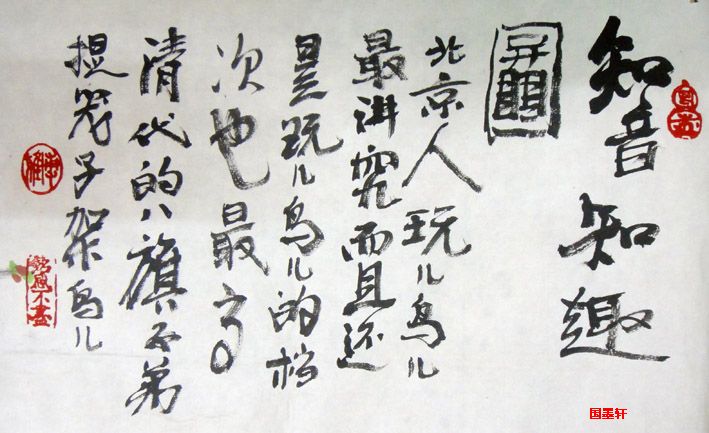 知音知趣
北京人玩儿鸟儿
最讲究而且还
是玩儿鸟儿的档
次也最高
清代的八旗子弟
提笼子架鸟儿
国墨轩